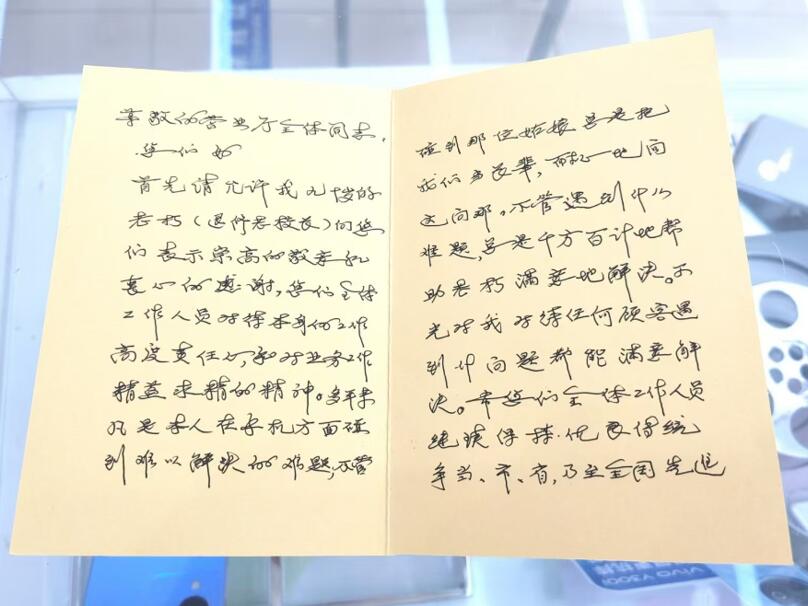 尊敬的营业厅全体同志，
您们好
首先请允许我九十岁的
老朽（退休老校长）向您
们表示崇高的敬意和
衷心的感谢，您们全体
工作人员对待本身的工作
高度责任心，和对业务工作
精益求精的精神。多年来
凡是本人在手机方面碰
到难以解决的难题，不管
碰到那位姑娘总是把
我们当长辈，而 地问
这问那。不管遇到什么
难题，总是千方百计地帮
助老朽满意地解决。不
光对我对待任何顾客遇
到什问题都能满意解
决。希您们全体工作人员
继续保持优良传统
争当、市、省，乃至全国先进
VIVO Y300i